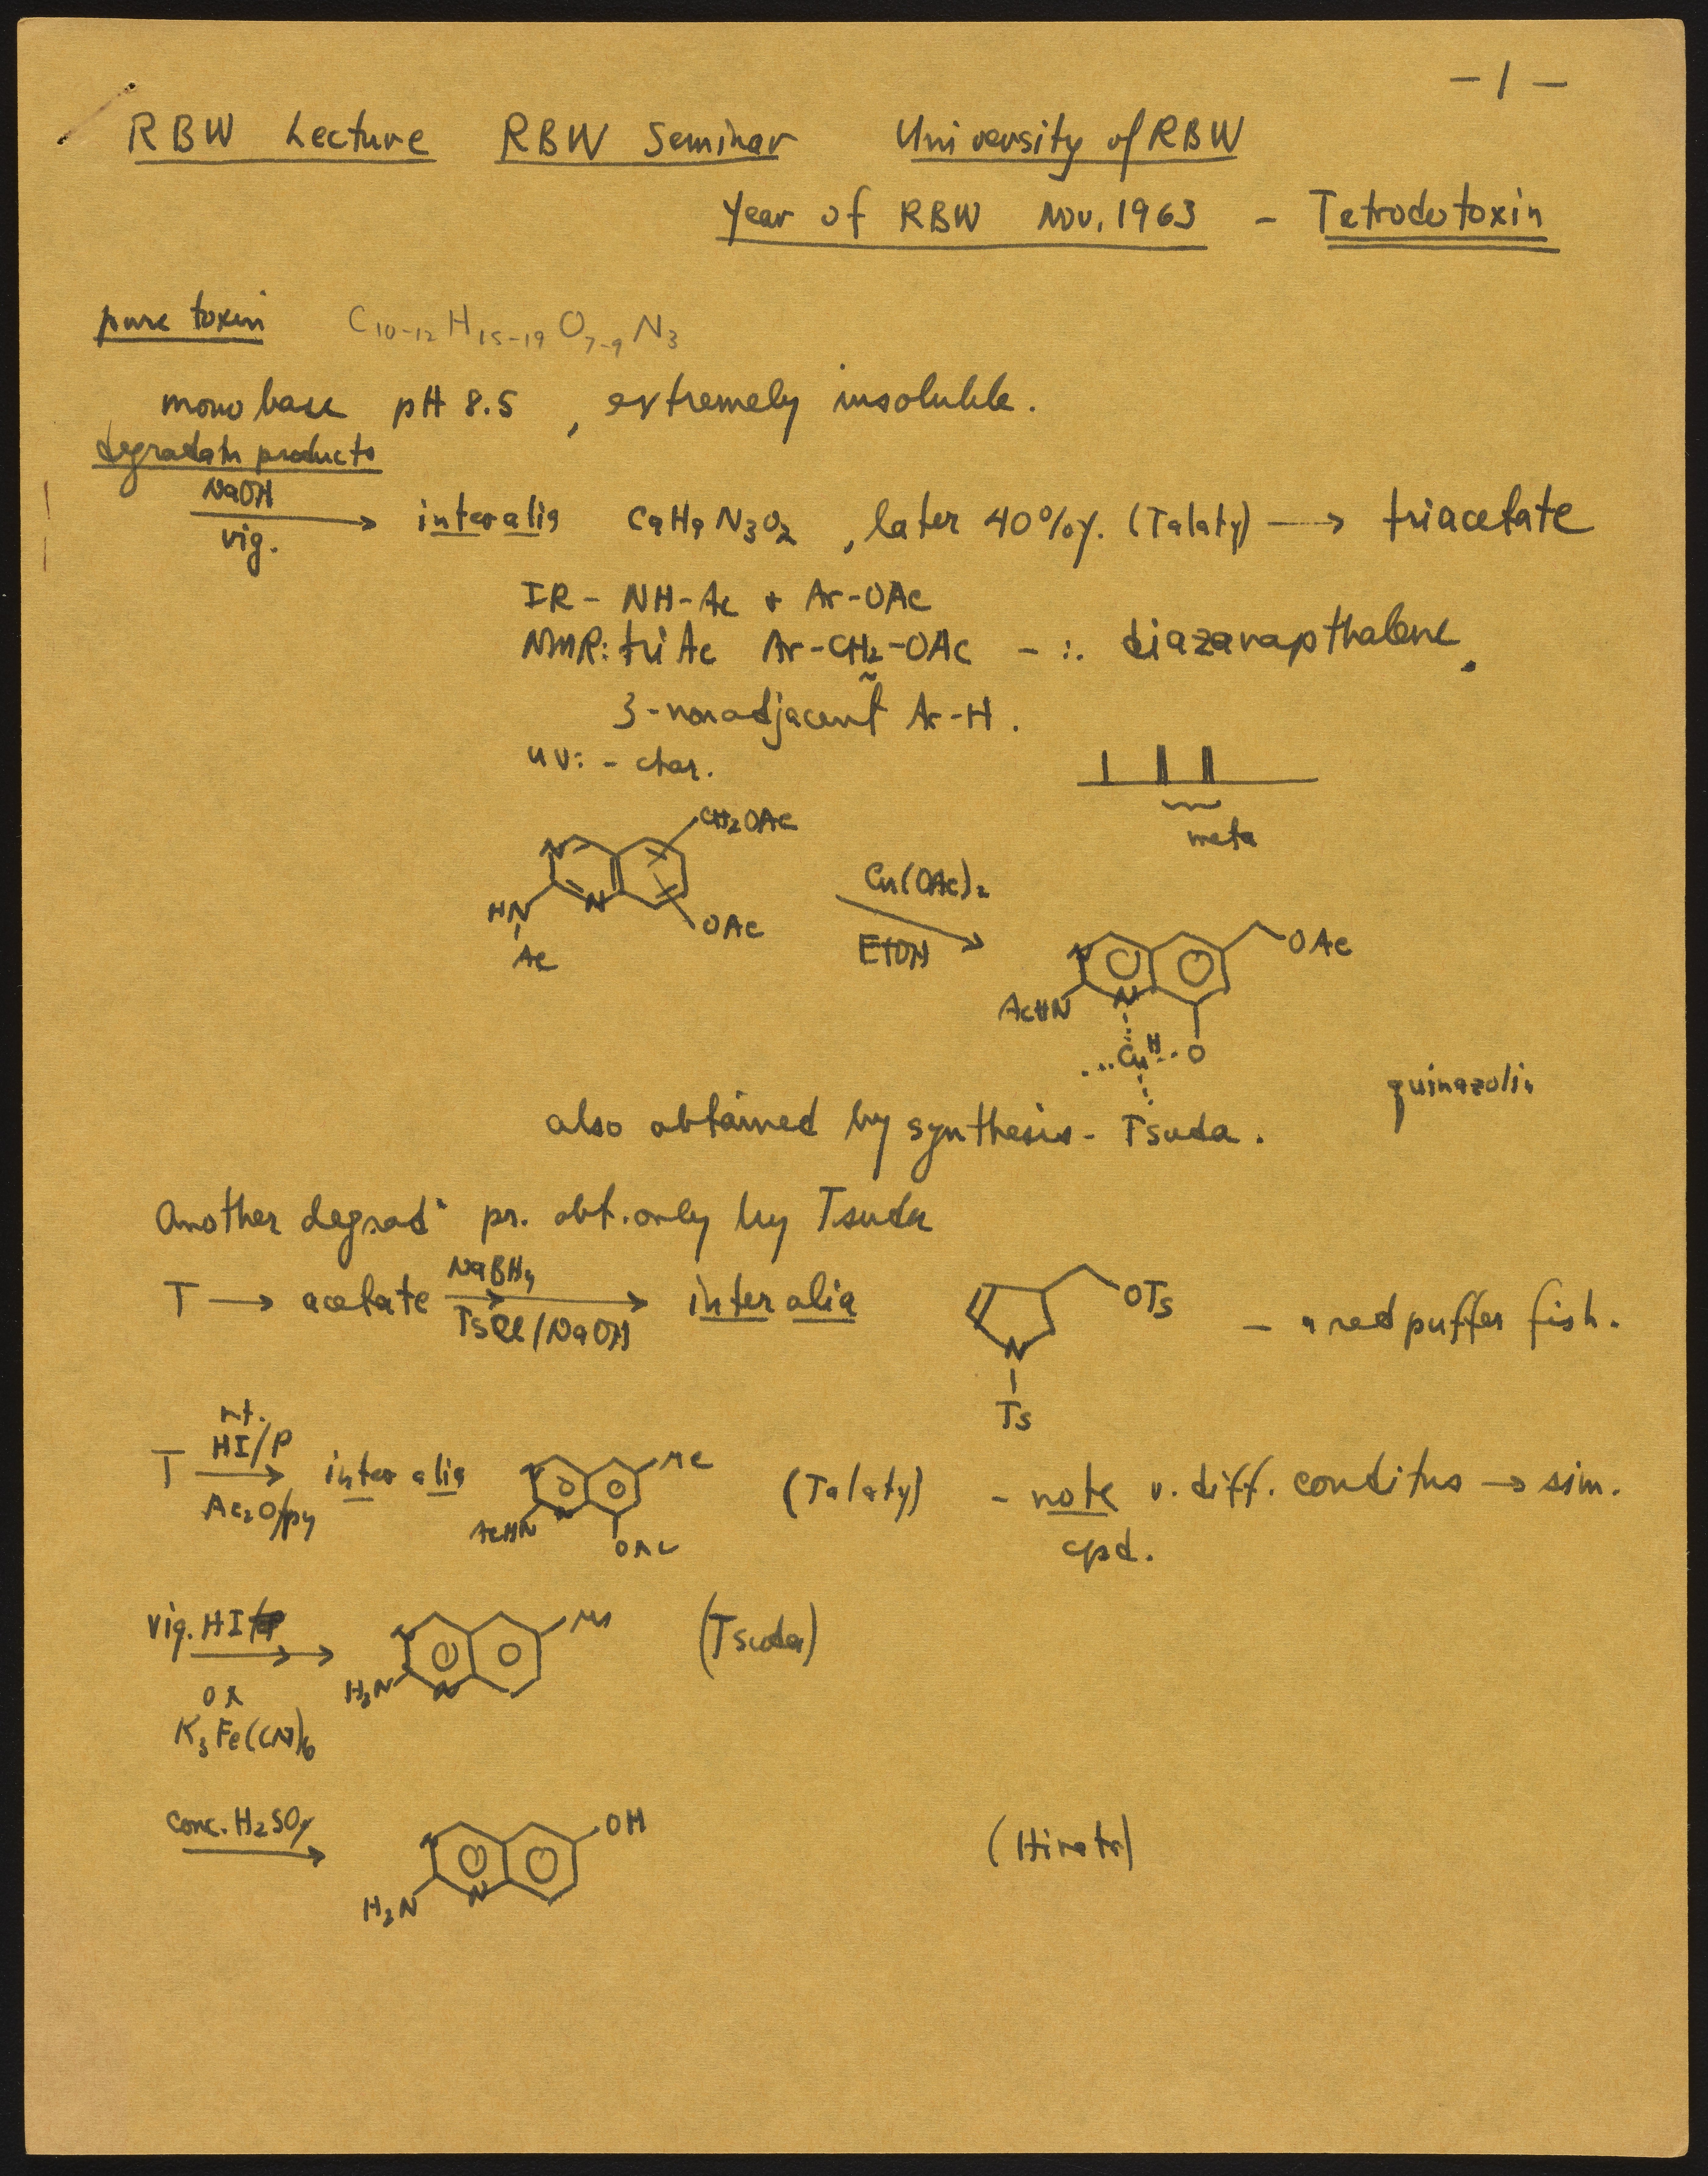 - 1 -
RBW Lecture RBW Seminar University of RBW
Year of RBW Nov. 1963 - Tetrodotoxin
pure toxin C10-12 H15-19 O7-9 N3
mono base pH 8.5 , extremely insoluble.
degradatn products
NaOH
vig.
inter alia C9H9N3O2 , later 40%y. (Talaty) → triacetate
IR - NH-Ac + Ar-OAc
NMR: tri Ac Ar-CH2-OAc - ∴ diazanapthalene.
3-nonadjacent Ar-H.
uv: - char.
meta
CH2OAc
N
N
HN
Ac
OAc
Cu(OAc)2
EtOH
OAc
N
N
AcHN
Cu II
O
quinazolin
also obtained by synthesis - Tsuda.
Another degradn pr. obt. only by Tsuda
T → acetate NaBH4 TsCl/NaOH inter alia
OTs
N
Ts
- a red puffer fish.
r.t.
T HI/P Ac2O/py inter alia
Me
N
N
AcHN
OAc
(Talaty) - note v. diff. conditns → sim.
cpd.
vig. HI
OR
K3Fe(CN)6
Me
N
H2N
N
(Tsuda)
conc. H2SO4
OH
N
H2N
N
(Hirata)